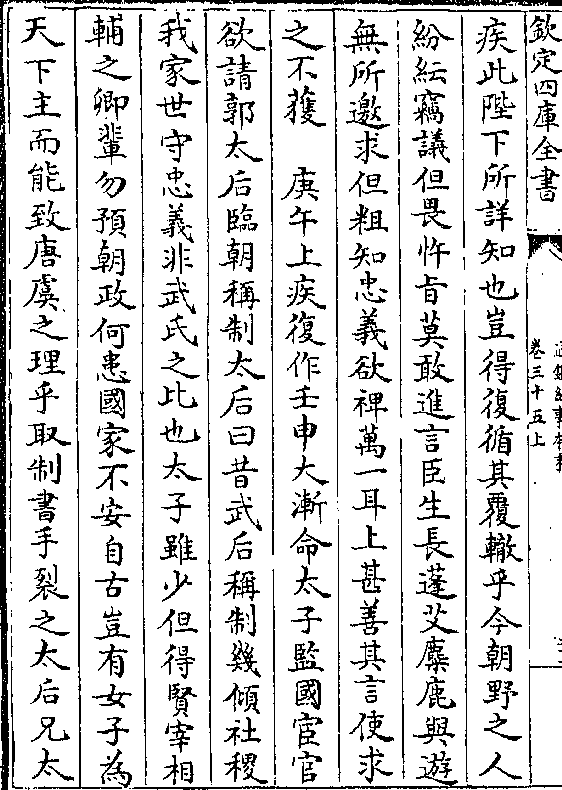 欽定四庫全書
卷三十五上
疾此陛下所詳知也豈得復循其覆轍乎今朝野之人
紛紜竊議但畏忤旨莫敢進言臣生長蓬艾麋鹿與遊
無所邀求但粗知忠義欲裨萬一耳上甚善其言使求
之不獲　庚午上疾復作壬申大漸命太子監國宦官
欲請郭太后臨朝稱制太后曰昔武后稱制幾傾社稷
我家世守忠義非武氏之比也太子雖少但得賢宰相
輔之卿輩勿預朝政何患國家不安自古豈有女子為
天下主而能致唐虞之理乎取制書手裂之太后兄太